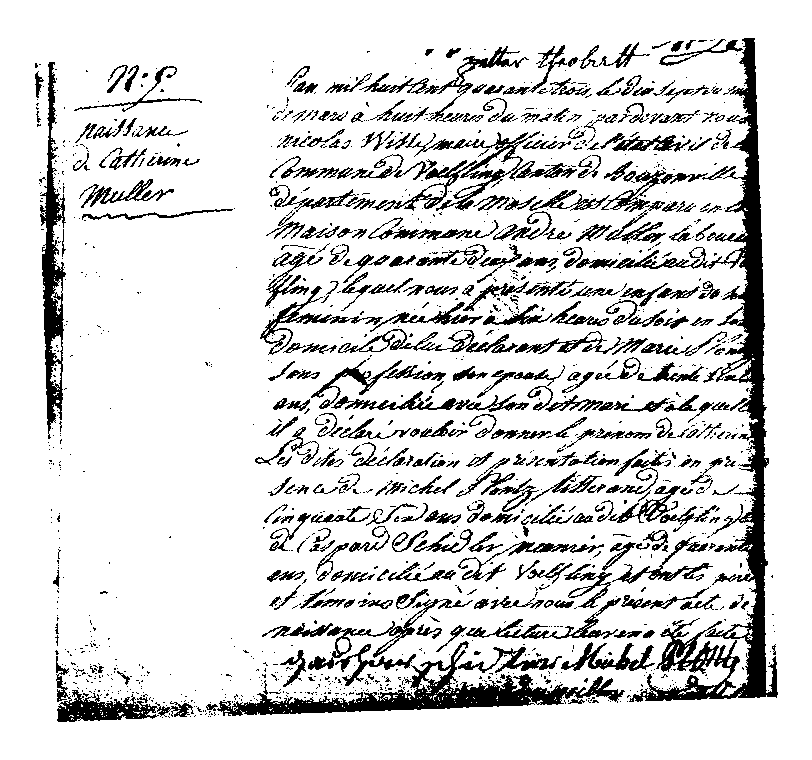 N. 9.
naissance
de Catherine
Muller
petter theobaltt
L'an mil huit cent quarante trois, le dix sept du mois
de mars à huit heures du matin, pardevant nous
nicolas Witte, maire, officier de l'état civil de la
Commune de Voelfling, Canton de Bouzonville
département de la Moselle est Comparu en la
Maison Commune andré Muller, laboureur
agé de quarante deux ans, domicilié au dit Voel
fling, lequel nous a présenté une enfant de sexe
féminin, née hier à six heures du soir en son
domicile de lui déclarant et de Marie
sans profession, son epouse, agée de trente
ans, domiciliée avec son dit mari et à laquelle
il a déclaré vouloir donner le prénom de Catherine
Les dites déclaration et présentation faites en pré
sence de Michel tisserand, agé de
Cinquante ans domicilié au dit Voelfling, et
de Caspard Schidler, meunier, agé de quarante
ans, domicilié au dit Voelfling, et ont les père
et témoins signé avec nous le présent acte de
naissance après que lecture leur en a été faite
Michel